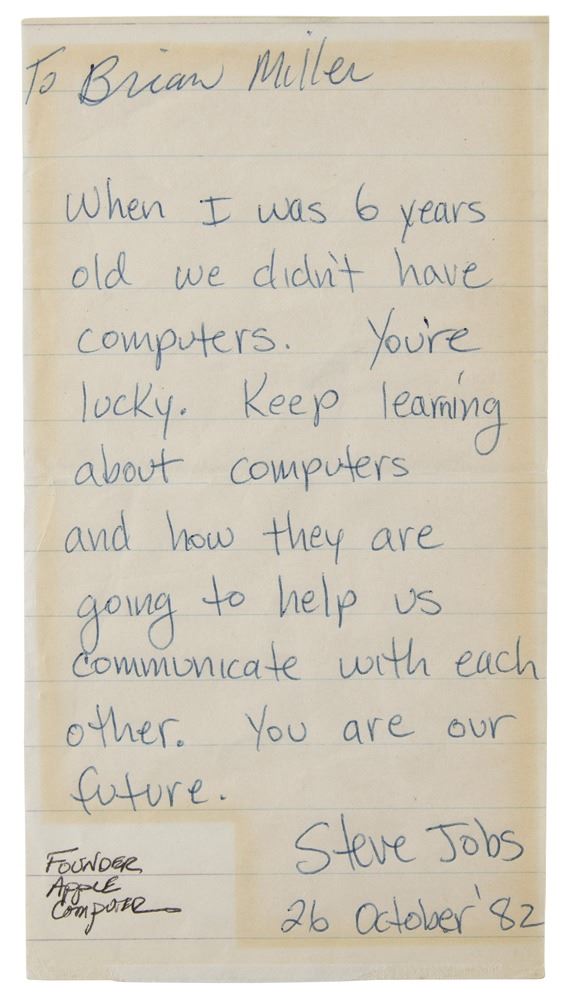 To Brian Miller
When I was 6 years
old we didn't have
computers. You're
lucky. Keep learning
about computers
and how they are
going to help us
communicate with each
other. You are our
future.
Steve Jobs
26 October '82
Founder
Apple
Computer